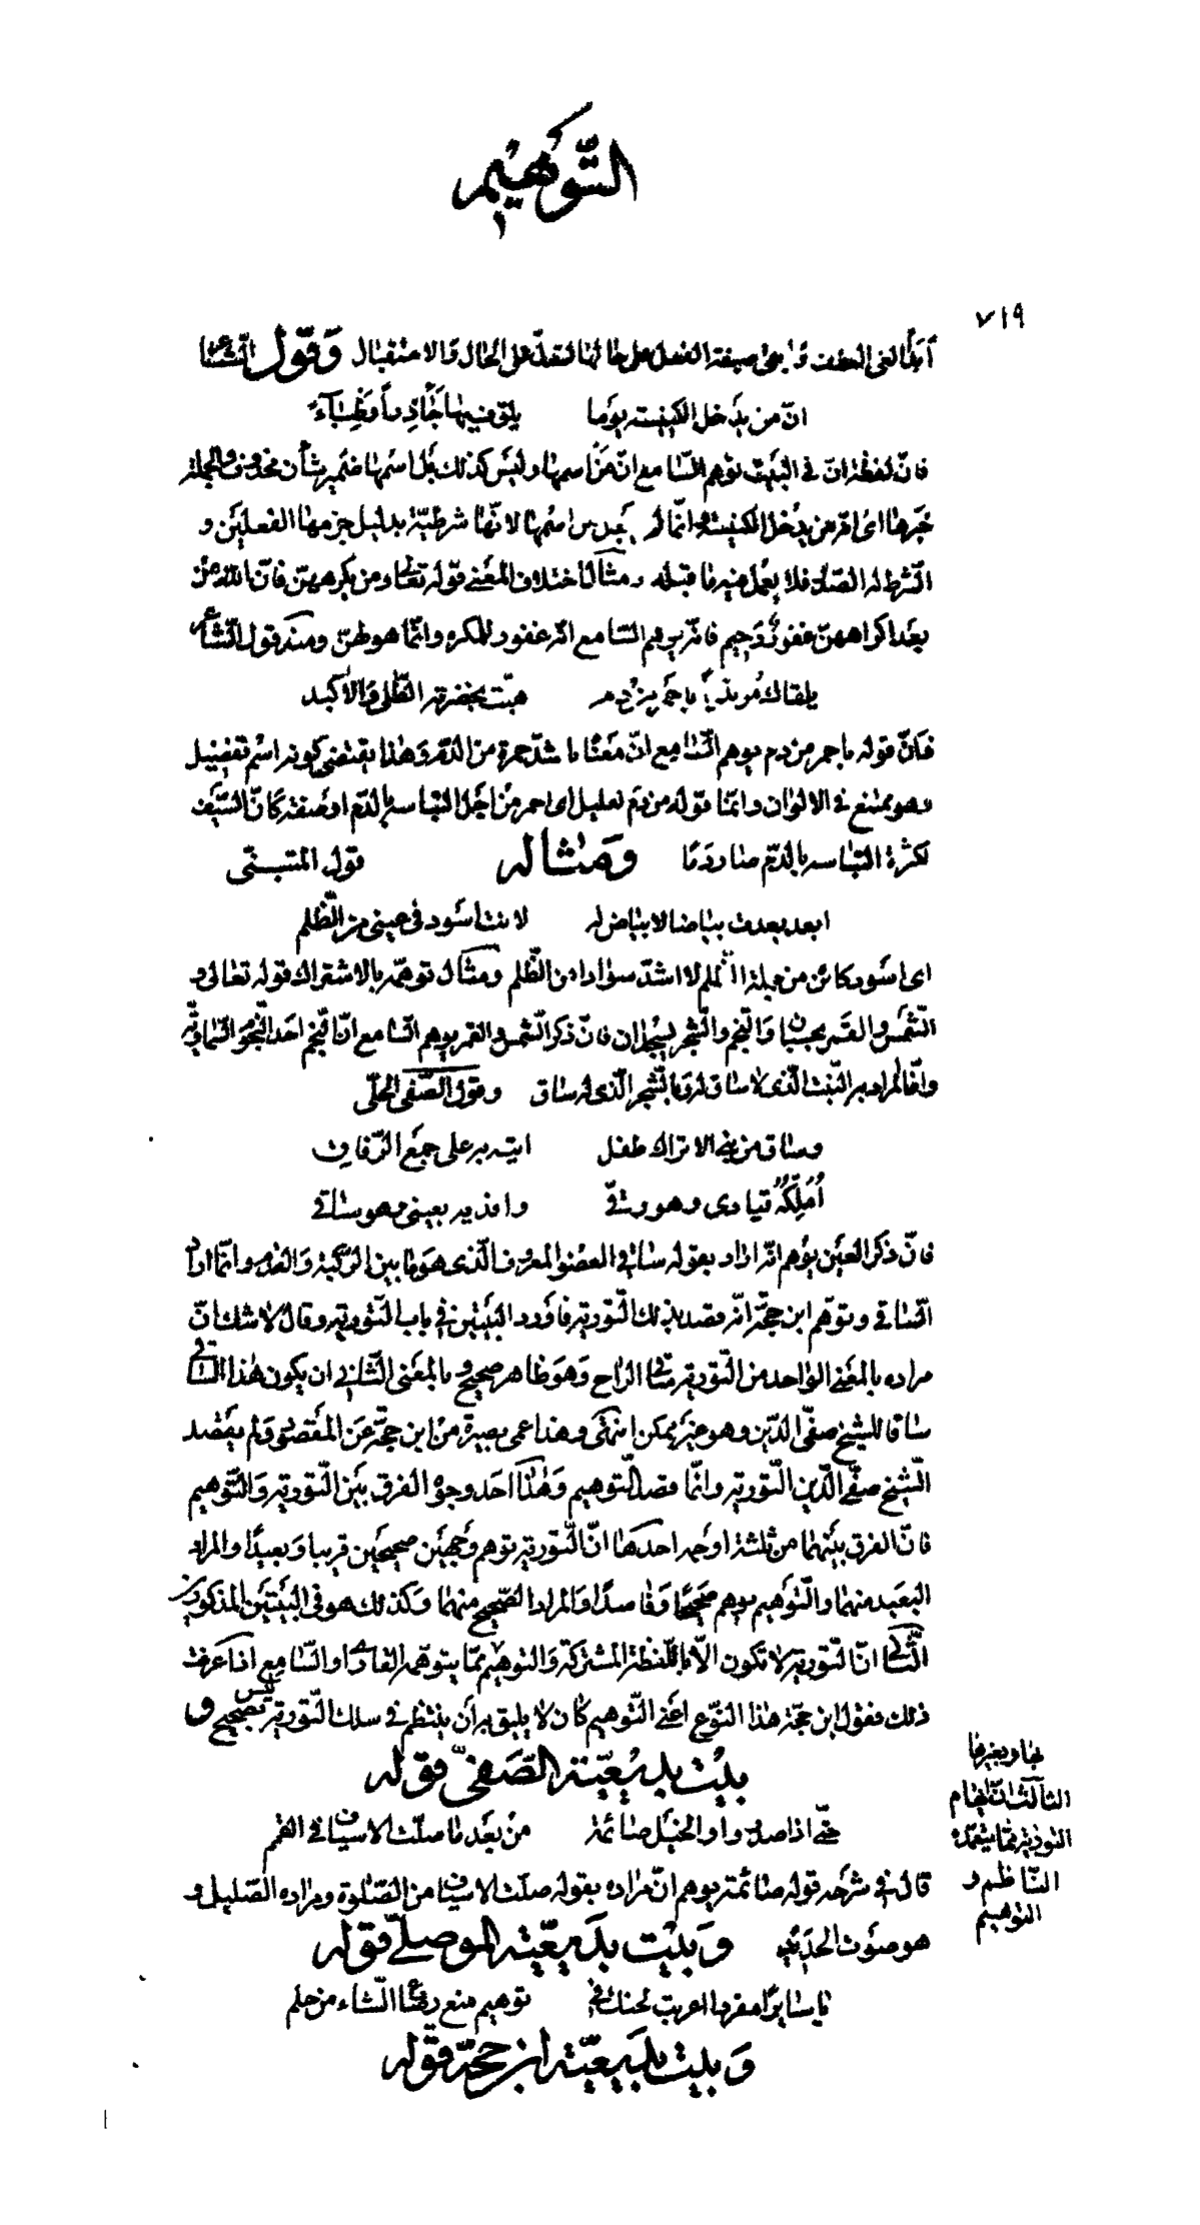 التّوهيم
٧١٩
أبدا الغى العطف وابقى صيغة الفعل على حالها لتدلّ على الحال والاستقبال وقول الشّاعر
انّ من يدخل الكنيسة يوما يلق فيها جآذرا وظباء
فانّ لفظة انّ في البيت توهم السّامع انّ من اسمها وليس كذلك بل اسمها ضمير شأن محذوف والجملة
خبرها اى انّه من يدخل الكنيسة وانّما لم يجعل من اسمها لانّها شرطيّة بدليل جزمها الفعلين و
الشّرط له الصّدر فلا يعمل فيه ما قبله ومثال اختلاف المعنى قوله تعالى ومن يكرههنّ فانّ الله من
بعد اكراههنّ غفور رحيم فانّه يوهم السّامع انّه غفور للمكره وانّما هو لهنّ ومنه قول الشّاعر
يلقاك مرتديا باحمر من دم ذهبت بخضرته الطّلى والاكبد
فانّ قوله باحمر من دم يوهم السّامع انّ معناه باشدّ حمرة من الدّم وهذا يقتضى كونه اسم تفضيل
وهو ممتنع في الالوان وانّما قوله من دم تعليل اى احمر من اجل التباسه بالدّم او صفة كانّ السّيف
لكثرة التباسه بالدّم صار دما ومثاله قول المتنبّى
ابعد بعدت بياضا لا بياض له لانت اسود في عينى من الظّلم
اى اسود كائن من جملة الظّلم لا اشدّ سوادا من الظّلم ومثال توهّمه بالاشتراك قوله تعالى و
الشّمس والقمر بحسبان والنّجم والشّجر يسجدان فانّ ذكر الشّمس والقمر يوهم السّامع انّ النّجم احد النّجوم السّماويّة
وانّما المراد به النّبت الّذى لا ساق له وبالشّجر الّذى له ساق وقول الصّفى الحلّى
وساق من بنى الاتراك طفل اتيه به على جمع الرّفاق
أملّكه قيادى وهو رقّى وافديه بعينى وهو ساقى
فانّ ذكر العين يوهم انّه اراد بقوله ساقى العضو المعروف الّذى هو ما بين الرّكبة والقدم وانّما اراد
السّاقى وتوهّم ابن حجّة انّه قصد بذلك التّورية فاورد البيتين في باب التّورية وقال لا شك انّ
مراده بالمعنى الواحد من التّورية ساقى الراح وهو ظاهر صحيح وبالمعنى الثّانى ان يكون هذا السّاقى
ساقا للشيخ صفىّ الدّين وهو غير ممكن انتهى وهذا عمى بصيرة من ابن حجّة عن المقصود ولم يقصد
الشّيخ صفىّ الدّين التّورية وانّما قصد التّوهيم وهذا احد وجوه الفرق بين التّورية والتّوهيم
فانّ الفرق بينهما من ثلثة اوجه احدها انّ التّورية توهم وجهين صحيحين قريبا وبعيدا والمراد
البعيد منهما والتّوهيم يوهم صحيحا وفاسدا والمراد الصّحيح منهما وكذلك هو في البيتين المذكورين
الثّانى انّ التّورية لا تكون الّا باللّفظة المشتركة والتوهيم ممّا يتوهّمه القارى او السّامع اذا عرفت
ذلك فقول ابن حجّة هذا النّوع اعنى التّوهيم كان لا يليق به أن ينتظم في سلك التّورية ليس بصحيح و
بها وبغيرها
الثالث انّ ايهام
التّورية ممّا يتعمّده
النّاظم و
التوهيم
بيت بديعيّة الصّفىّ قوله
حتّى اذا صدروا والخيل صائمة من بعد ما صلّت الاسياف في القمم
قال في شرحه قوله صائمة يوهم انّ مراده بقوله صلّت الاسياف من الصّلوة ومراده الصّليل و
هو صوت الحديد وبيت بديعيّة الموصلىّ قوله
يا سايرا مفردا اعربت لحنك في توهيم منع رضاء الشاء من حلم
وبيت بديعيّة ابن حجّة قوله